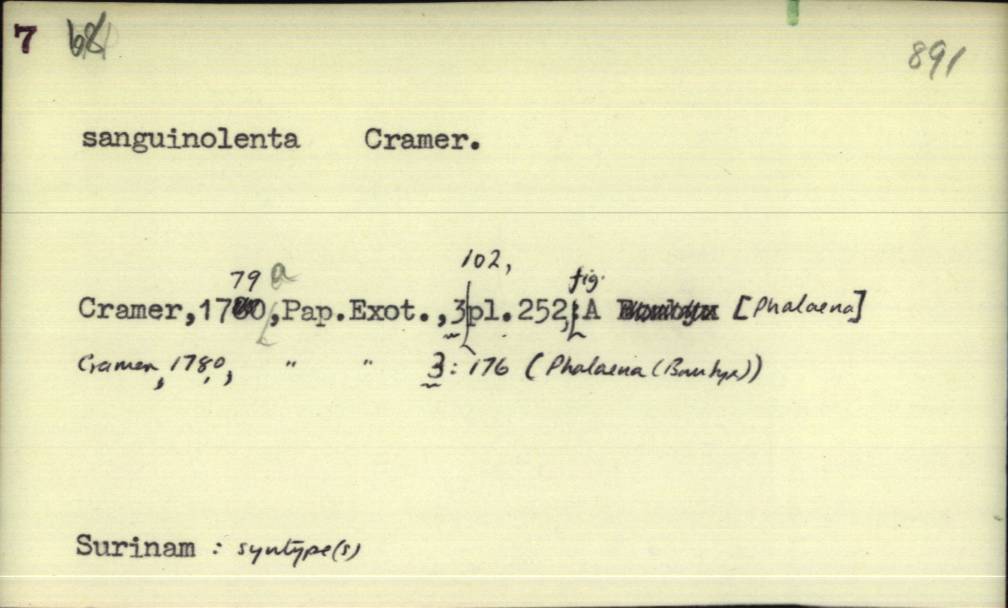 7 891
sanguinolenta Cramer.
79 a 102, fig.
Cramer,1780,Pap.Exot.,3 pl.252,:A [Phalaena]
Cramer, 1780, " " 3:176 (Phalaena (Bombyx))
Surinam : syntype(s)